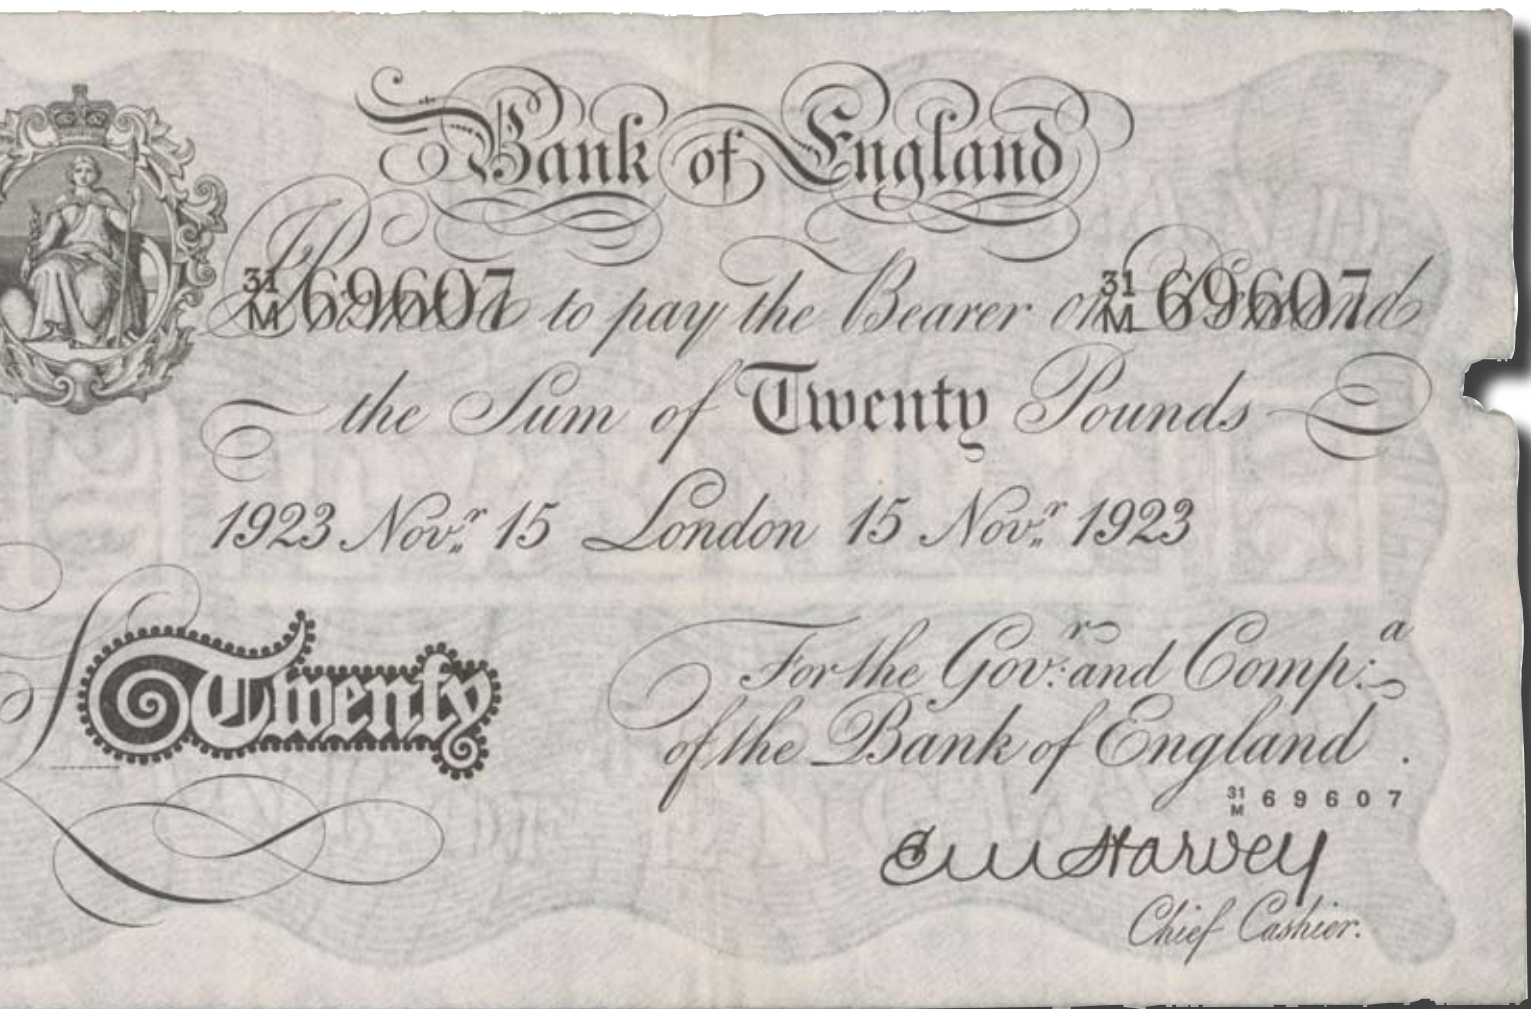 Bank of England
31/M 69607 31/M 69607
I Promise to pay the Bearer on Demand
the Sum of Twenty Pounds
1923 Novr. 15 London 15 Novr. 1923
Twenty
For the Govr. and Compa.
of the Bank of England.
31/M 69607
E M Harvey
Chief Cashier.